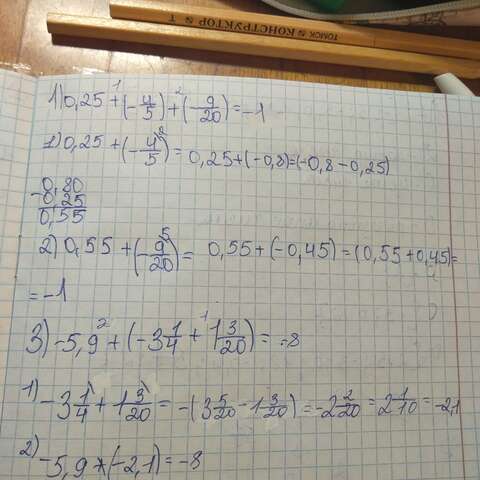 ТОМСК КОНСТРУКТОР Т
1) 0,25 + (-4/5) + (-9/20) = -1
1) 0,25 + (-4/5) = 0,25 + (-0,8) = (-0,8 - 0,25)
0,80
- 0,25
0,55
2) 0,55 + (-9/20) = 0,55 + (-0,45) = (0,55 + 0,45) =
= -1
3) -5,9 + (-3 1/4 + 1 3/20) = -8
1) -3 1/4 + 1 3/20 = -(3 5/20 - 1 3/20) = -2 2/20 = 2 1/10 = -2,1
2) -5,9 + (-2,1) = -8